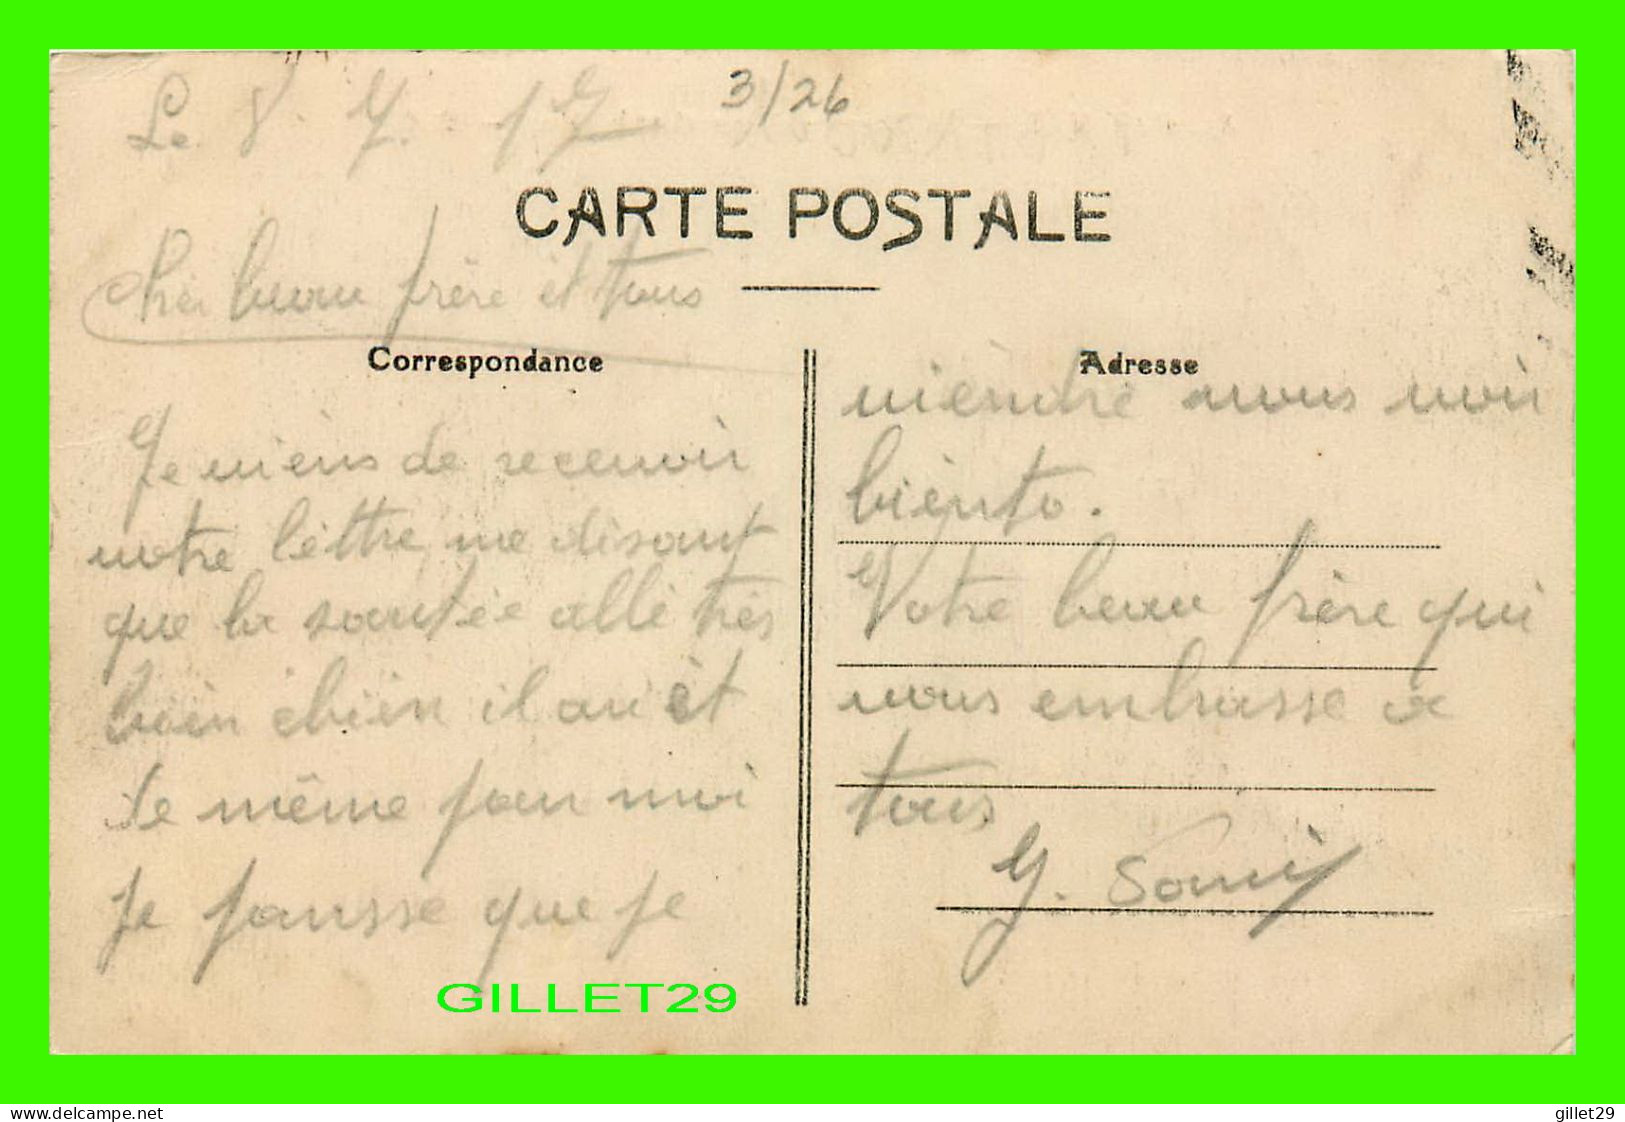 Le 8. 7. 17
3/26
CARTE POSTALE
Cher beau frère et tous
Correspondance
Je viens de recevoir
votre lèttre me disant
que la santée allè très
bien èbien il ani èt
de même pour moi
je pansse que je
Adresse
viendré vous voir
biento.
Votre beau frère qui
vous embrasse a
tous
G.
GILLET29
www.delcampe.net
gillet29